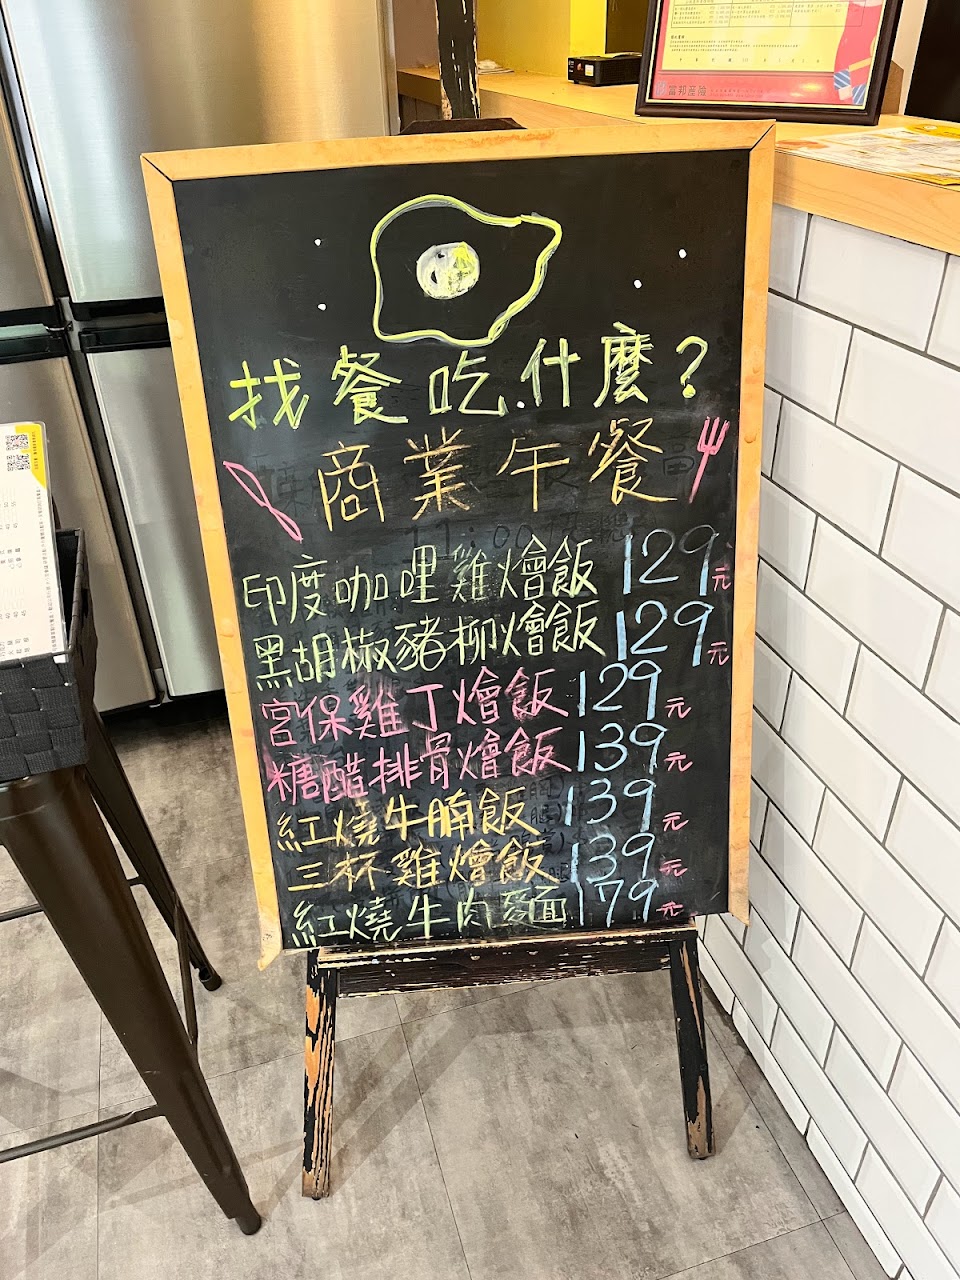 富邦產險
找餐吃什麼?
商業午餐
11:00
印度咖哩雞燴飯 129元
黑胡椒豬柳燴飯 129元
宮保雞丁燴飯 129元
糖醋排骨燴飯 139元
紅燒牛腩飯 139元
三杯雞燴飯 139元
紅燒牛肉麵 179元